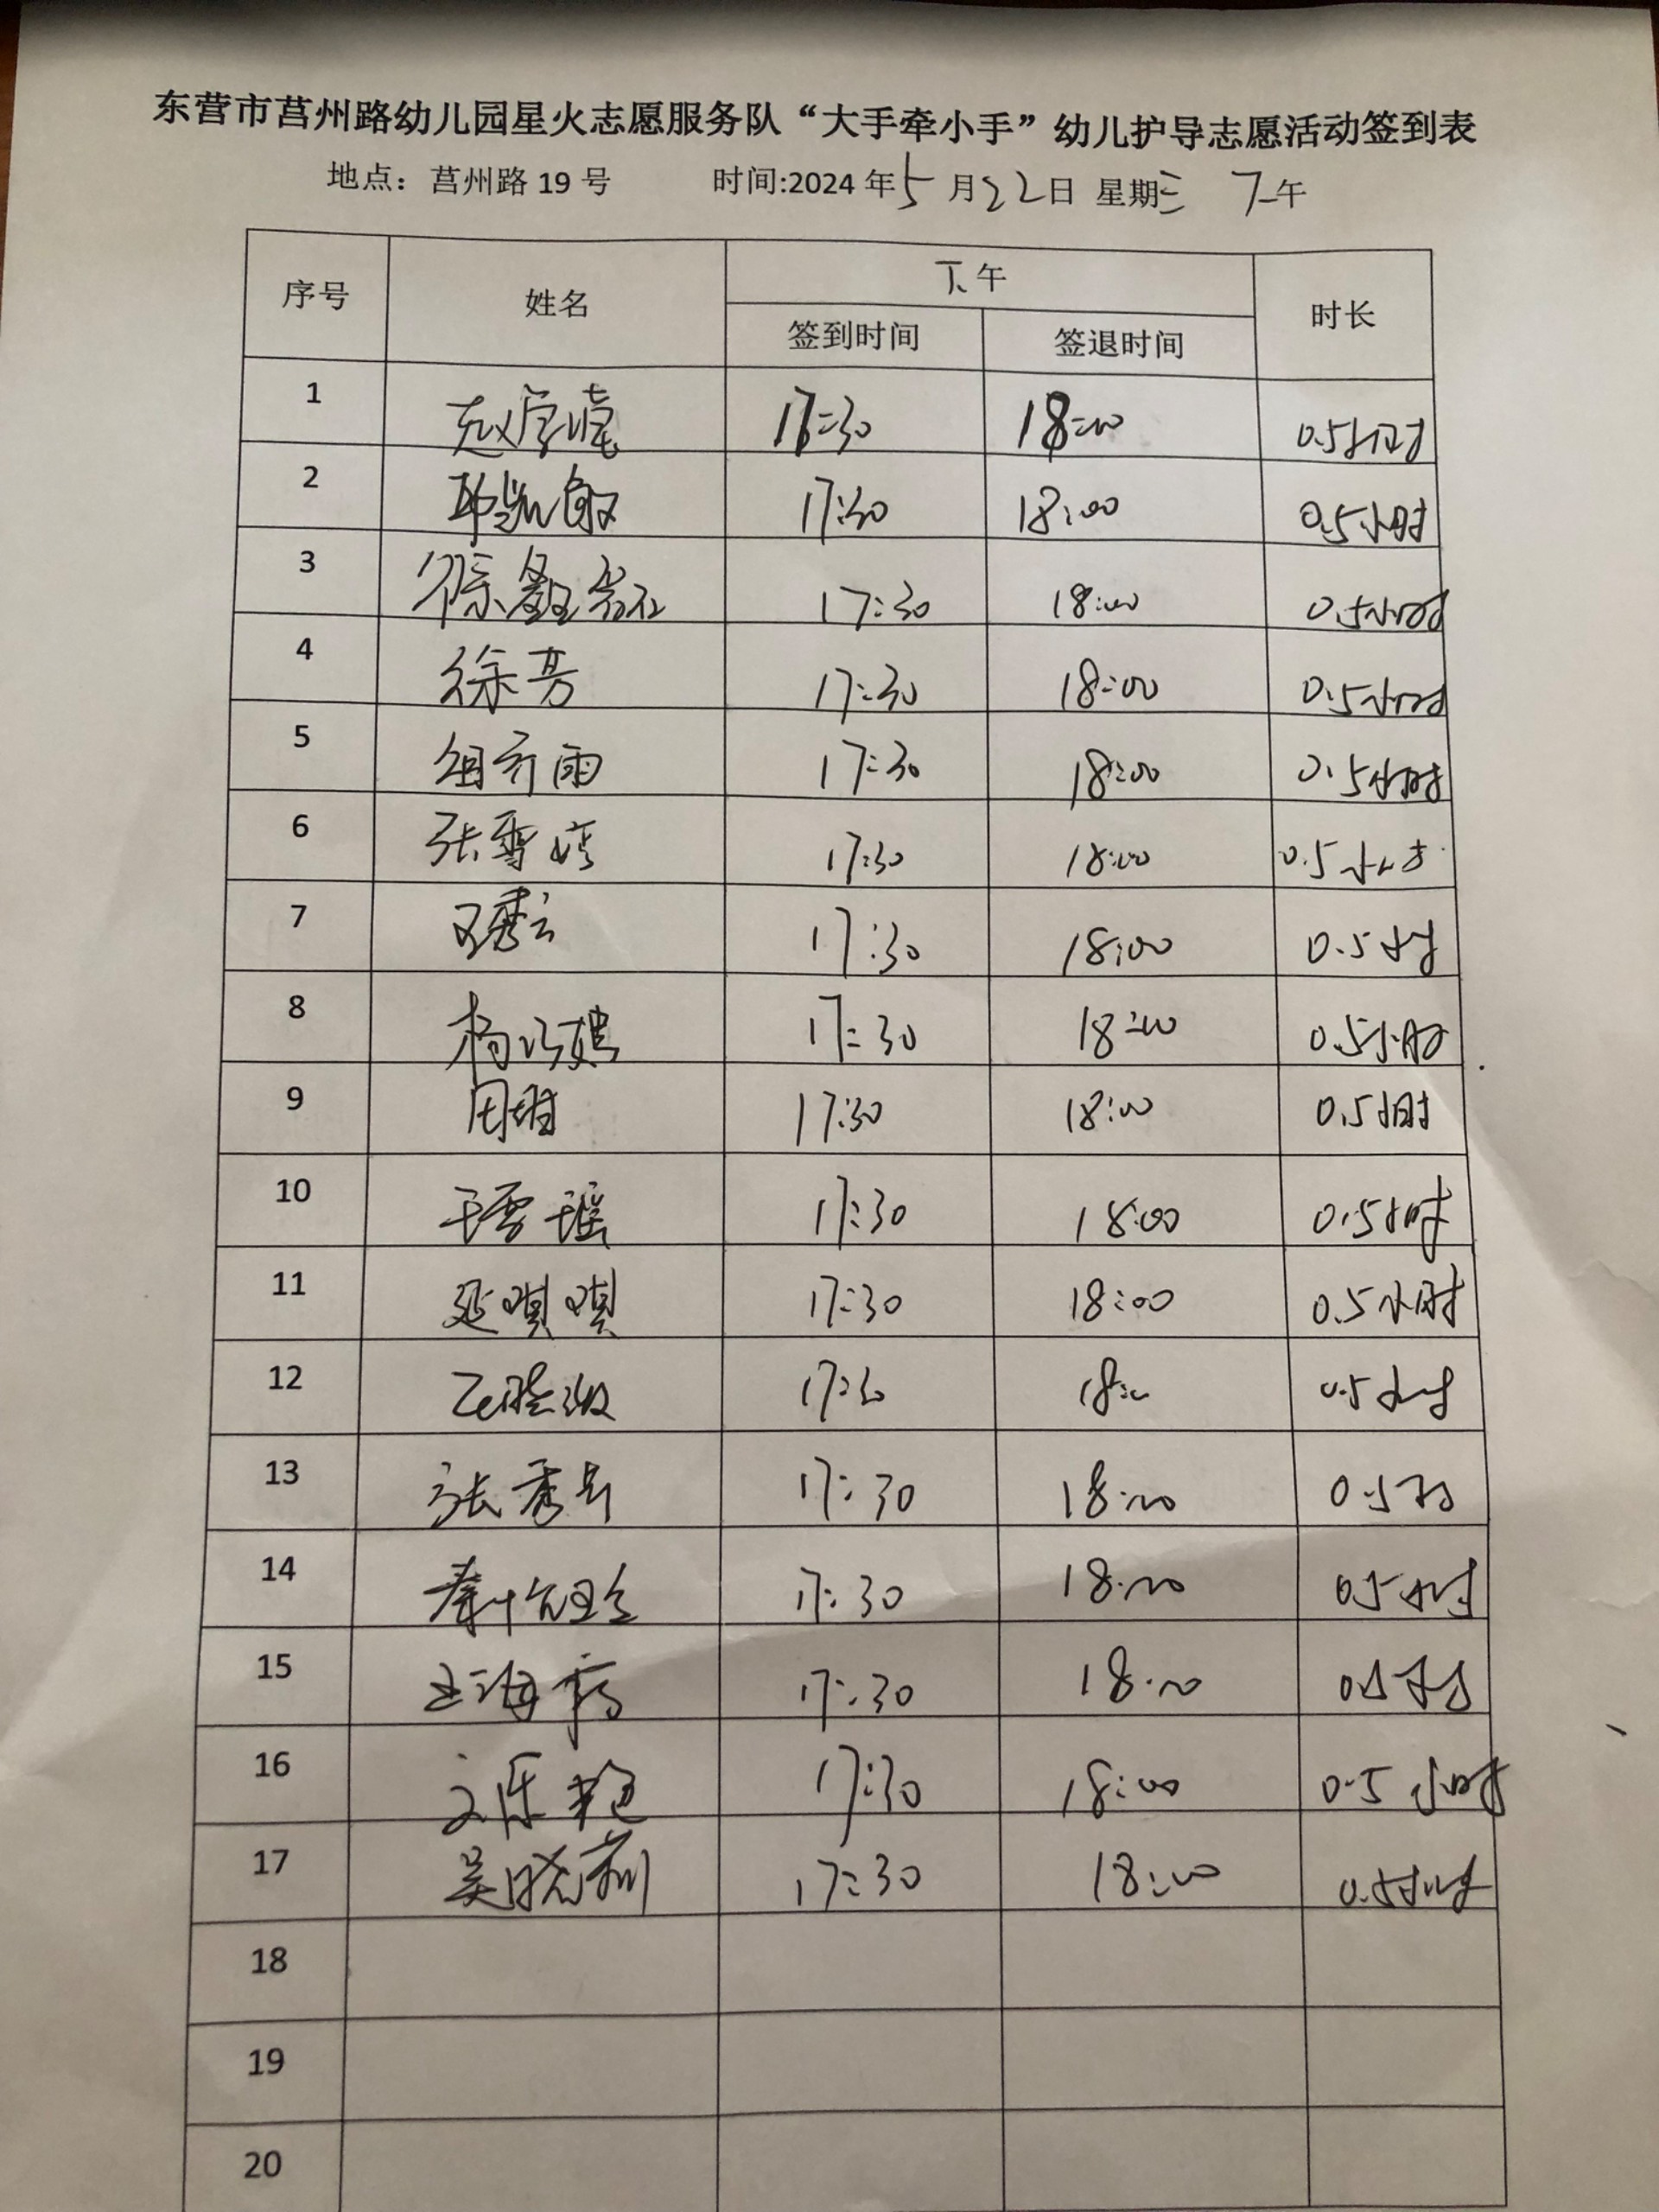 东营市莒州路幼儿园星火志愿服务队“大手牵小手”幼儿护导志愿活动签到表
地点：莒州路 19 号 时间:2024 年 5 月 22 日 星期三 下午
序号 姓名 下午 时长
签到时间 签退时间
1 17:30 18:00 0.5小时
2 17:30 18:00 0.5小时
3 徐 17:30 18:00 0.5小时
4 徐芳 17:30 18:00 0.5小时
5 雨 17:30 18:00 0.5小时
6 张雪婷 17:30 18:00 0.5小时
7 王秀云 17:30 18:00 0.5小时
8 杨巧娉 17:30 18:00 0.5小时
9 周 17:30 18:00 0.5小时
10 于雪瑶 17:30 18:00 0.5小时
11 延琪琪 17:30 18:00 0.5小时
12 17:30 18:00 0.5小时
13 张秀 17:30 18:00 0.5小时
14 17:30 18:00 0.5小时
15 王海 17:30 18:00 0.5小时
16 17:30 18:00 0.5小时
17 吴晓莉 17:30 18:00 0.5小时
18
19
20